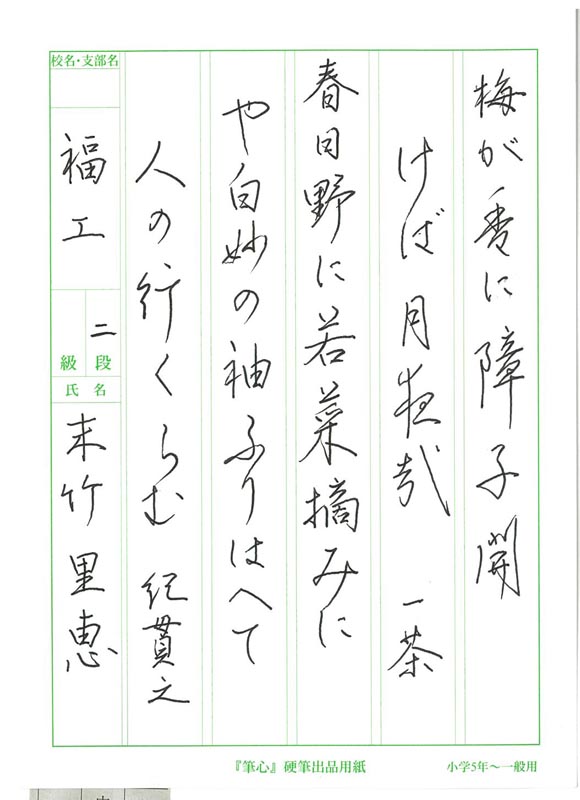 梅が香に障子開
けば月夜哉 一茶
春日野に若菜摘みに
や白妙の袖ふりはへて
人の行くらむ 紀貫之
校名・支部名
福工
二段
級
氏名
末竹里恵
『筆心』硬筆出品用紙
小学5年〜一般用